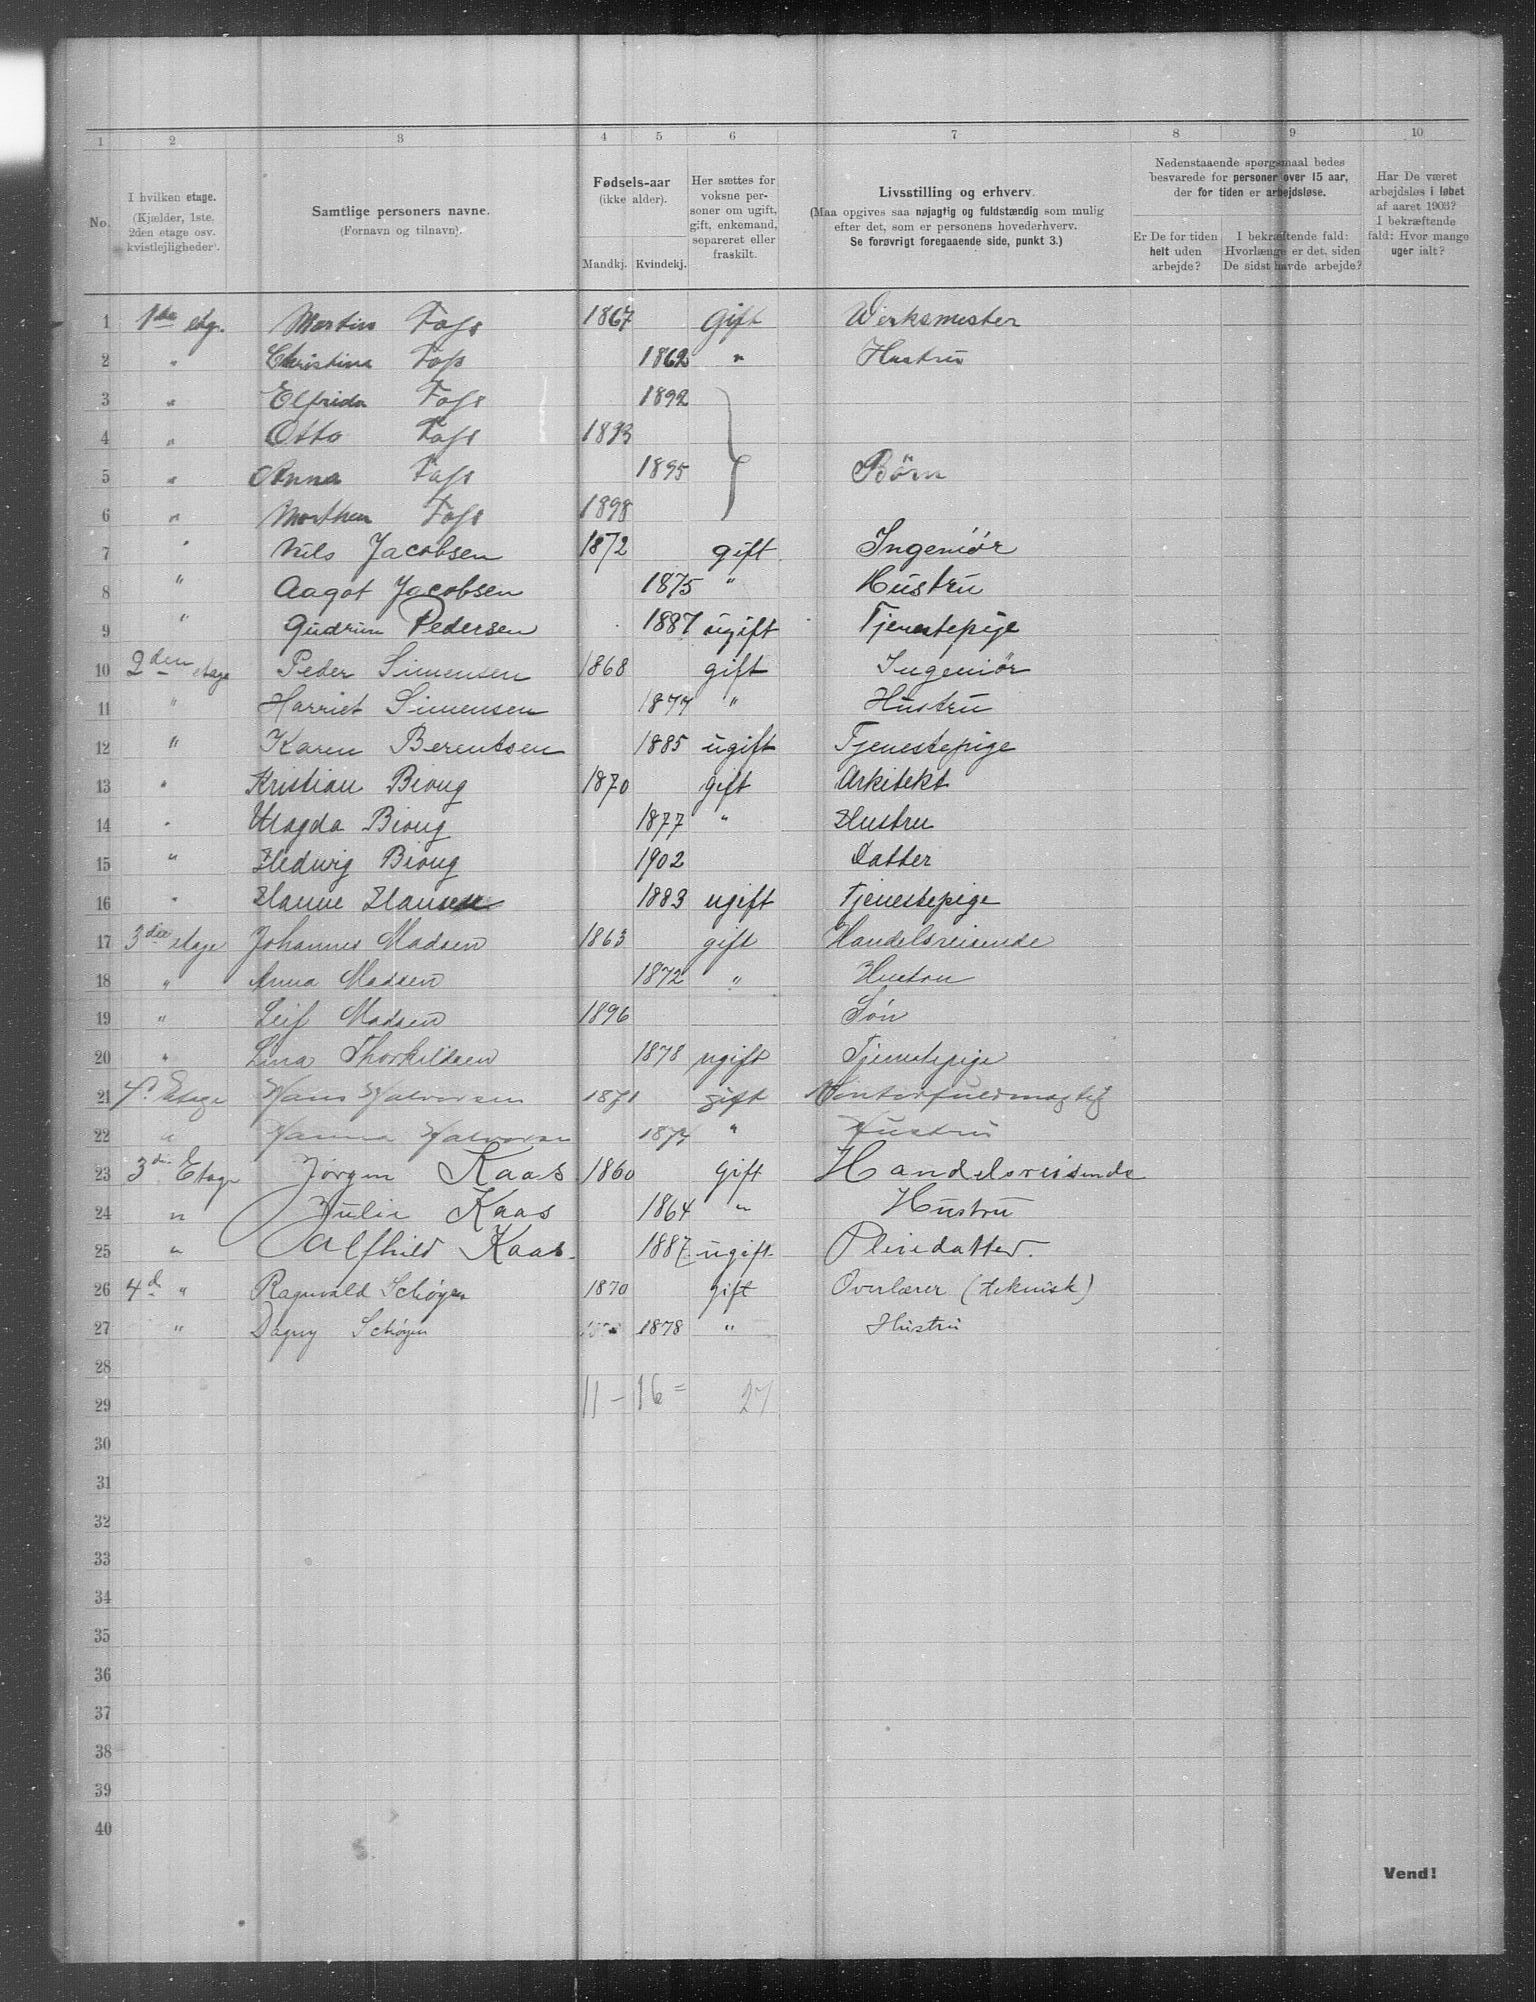 1 2 3 4 5 6 7 8 9 10
No.
I hvilken etage.
(Kjælder, 1ste.
2den etage osv.
kvistlejligheder).
Samtlige personers navne.
(Fornavn og tilnavn).
Fødsels-aar
(ikke alder).
Mandkj. Kvindekj.
Her sættes for
voksne per-
soner om ugift,
gift, enkemand,
separeret eller
fraskilt.
Livsstilling og erhverv.
(Maa opgives saa nøjagtig og fuldstændig som mulig
efter det, som er personens hovederhverv.
Se forøvrigt foregaaende side, punkt 3.)
Nedenstaaende spørgsmaal bedes
besvarede for personer over 15 aar,
der for tiden er arbejdsløse.
Er De for tiden
helt uden
arbejde?
I bekræftende fald:
Hvorlænge er det, siden
De sidst havde arbejde?
Har De været
arbejdsløs i løbet
af aaret 1903?
I bekræftende
fald: Hvor mange
uger ialt?
1 1ste etg. Martin Foss 1867 gift Værksmester
2 " Christina Foss 1862 " Hustru
3 " Elfrida Foss 1892
4 " Otto Foss 1893
5 " Anna Foss 1895 Børn
6 " Morthen Foss 1898
7 " Nils Jacobsen 1872 gift Ingeniør
8 " Aagot Jacobsen 1875 " Hustru
9 " Gudrun Pedersen 1887 ugift Tjenestepige
10 2den etage Peder Simensen 1868 gift Ingeniør
11 " Harriet Simensen 1877 " Hustru
12 " Karen Berentsen 1885 ugift Tjenestepige
13 " Kristian Biong 1870 gift Arkitekt
14 " Magda Biong 1877 " Hustru
15 " Hedwig Biong 1902 Datter
16 " Hanne Hansen 1883 ugift Tjenestepige
17 3die etage Johannes Madsen 1863 gift Handelsreisende
18 " Anna Madsen 1872 " Hustru
19 " Leif Madsen 1896 Søn
20 " Lina Thorkildsen 1878 ugift Tjenestepige
21 4de Etage Hans Halvorsen 1871 gift Kontorfuldmægtig
22 " Hanna Halvorsen 1877 " Hustru
23 3die Etage Jørgen Kaas 1860 gift Handelsreisende
24 " Julie Kaas 1864 " Hustru
25 " Alfhild Kaas 1887 ugift Pleiedatter.
26 4d " Ragnvald Schøyen 1870 gift Overlærer (teknisk)
27 " Dagny Schøyen 1878 " Hustru
28
29 11 - 16 = 27
30
31
32
33
34
35
36
37
38
39
40
Vend!